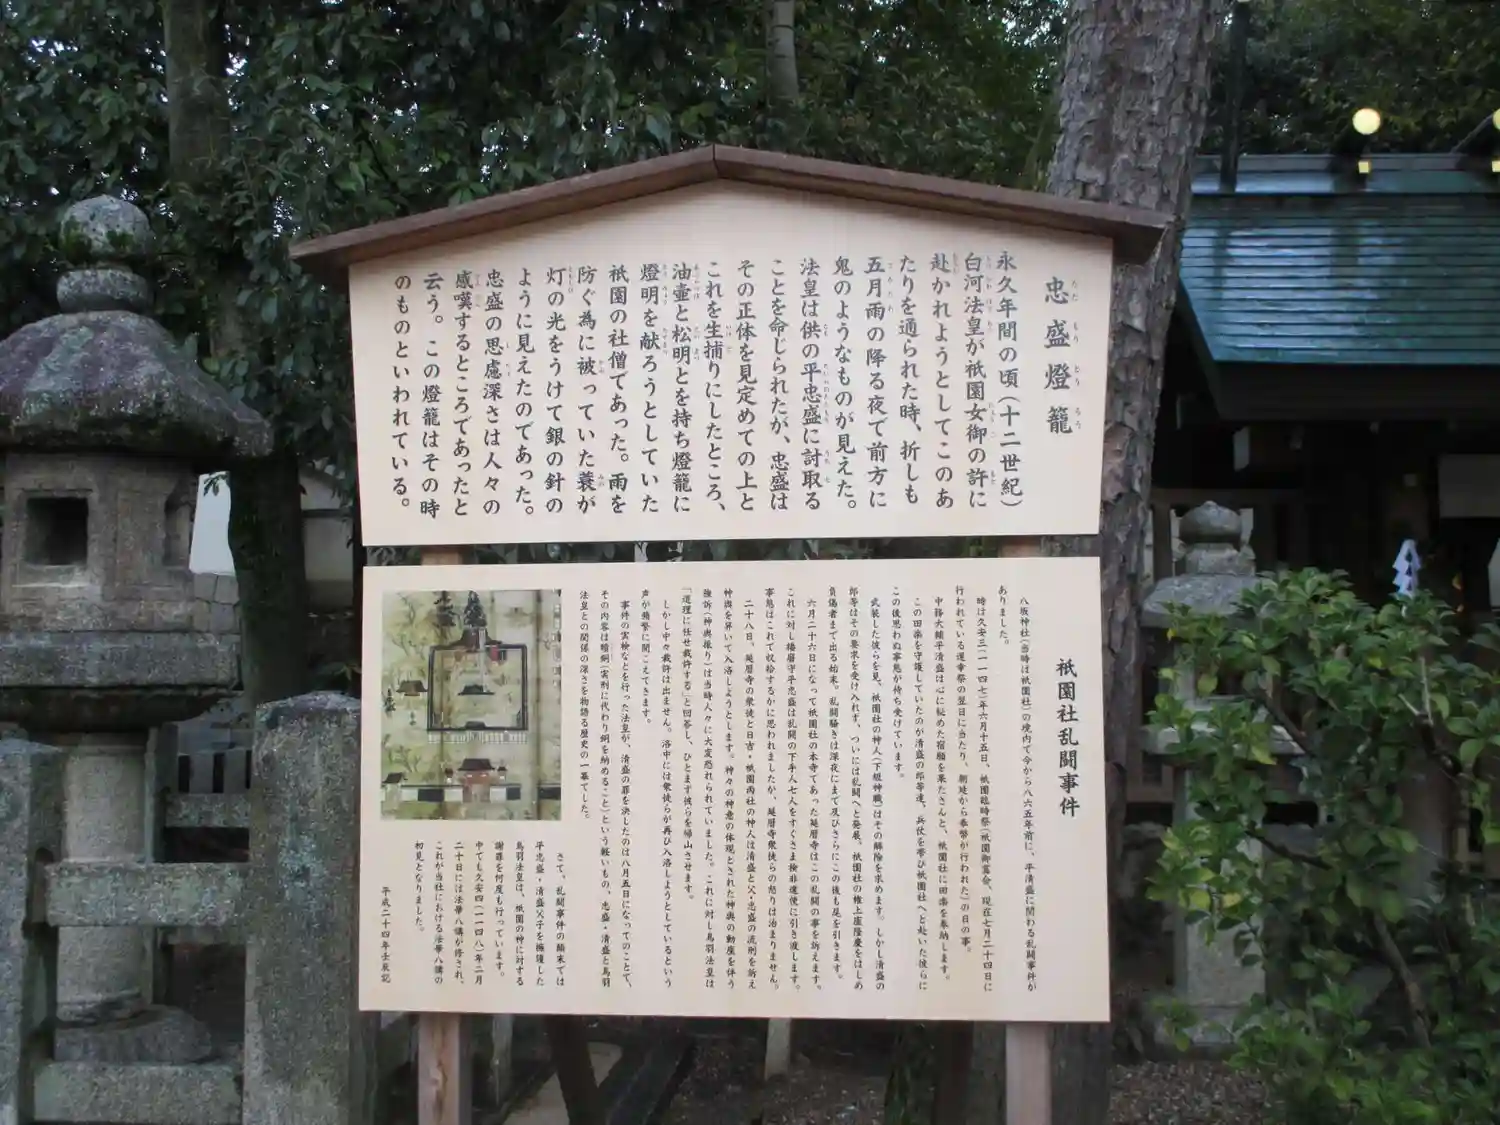 忠盛燈籠
永久年間の頃(十二世紀)
白河法皇が祇園女御の許に
赴かれようとしてこのあ
たりを通られた時、折しも
五月雨の降る夜で前方に
鬼のようなものが見えた。
法皇は供の平忠盛に討取る
ことを命じられたが、忠盛は
その正体を見定めての上と
これを生捕りにしたところ、
油壷と松明とを持ち燈籠に
燈明を献ろうとしていた
祇園の社僧であった。雨を
防ぐ為に被っていた蓑が
灯の光をうけて銀の針の
ように見えたのであった。
忠盛の思慮深さは人々の
感嘆するところであったと
云う。この燈籠はその時
のものといわれている。
祇園社乱闘事件
八坂神社(当時は祇園社)の境内で今から八六五年前に、平清盛に関わる乱闘事件が
ありました。
時は久安三(一一四七)年六月十五日、祇園臨時祭(祇園御霊会、現在七月二十四日に
行われている還幸祭の翌日に当たり、朝廷から奉幣が行われた)の日の事。
中務大輔平清盛は心に秘めた宿願を果たさんと、祇園社に田楽を奉納します。
この田楽を守護していたのが清盛の郎等達、兵仗を帯び祇園社へと赴いた彼らに
この後思わぬ事態が待ち受けています。
武装した彼らを見、祇園社の神人(下級神職)はその解除を求めます。しかし清盛の
郎等はその要求を受け入れず、ついには乱闘へと発展、祇園社の権上座隆慶をはじめ
負傷者まで出る始末。乱闘騒ぎは深夜にまで及びさらにこの後も尾を引きます。
六月二十六日になって祇園社の本寺であった延暦寺はこの乱闘の事を訴えます。
これに対し播磨守平忠盛は乱闘の下手人七人をすぐさま検非違使に引き渡します。
事態はこれで収拾するかに思われましたが、延暦寺衆徒らの怒りは治まりません。
二十八日、延暦寺の衆徒と日吉・祇園両社の神人は清盛と父・忠盛の流刑を訴え
神輿を舁いで入洛しようとします。神々の神意の体現とされた神輿の動座を伴う
強訴(神輿振り)は当時人々に大変恐れられていました。これに対し鳥羽法皇は
「道理に任せ裁許する」と回答し、ひとまず彼らを帰山させます。
しかし中々裁許は出ません。洛中には衆徒らが再び入洛しようとしているという
声が頻繁に聞こえてきます。
事件の実検などを行った法皇が、清盛の罪を決したのは八月五日になってのことで、
その内容は贖銅(実刑に代わり銅を納めること)という軽いもの、忠盛・清盛と鳥羽
法皇との関係の深さを物語る歴史の一幕でした。
さて、乱闘事件の顛末では
平忠盛・清盛父子を擁護した
鳥羽法皇は、祇園の神に対する
謝罪を何度も行っています。
中でも久安四(一一四八)年二月
二十日には法華八講が修され、
これが当社における法華八講の
初見となりました。
平成二十四年壬辰記